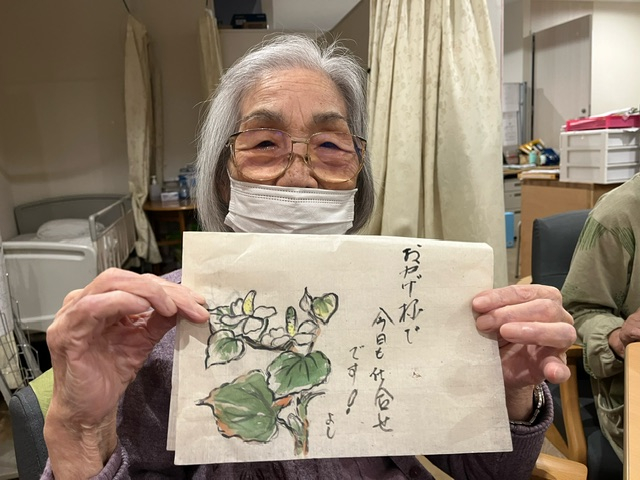 おかげ様で
今日も仕合せ
です!
よし